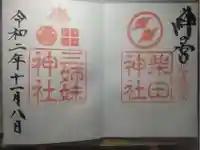 柴田神社
三姉妹神社
令和二年十一月八日